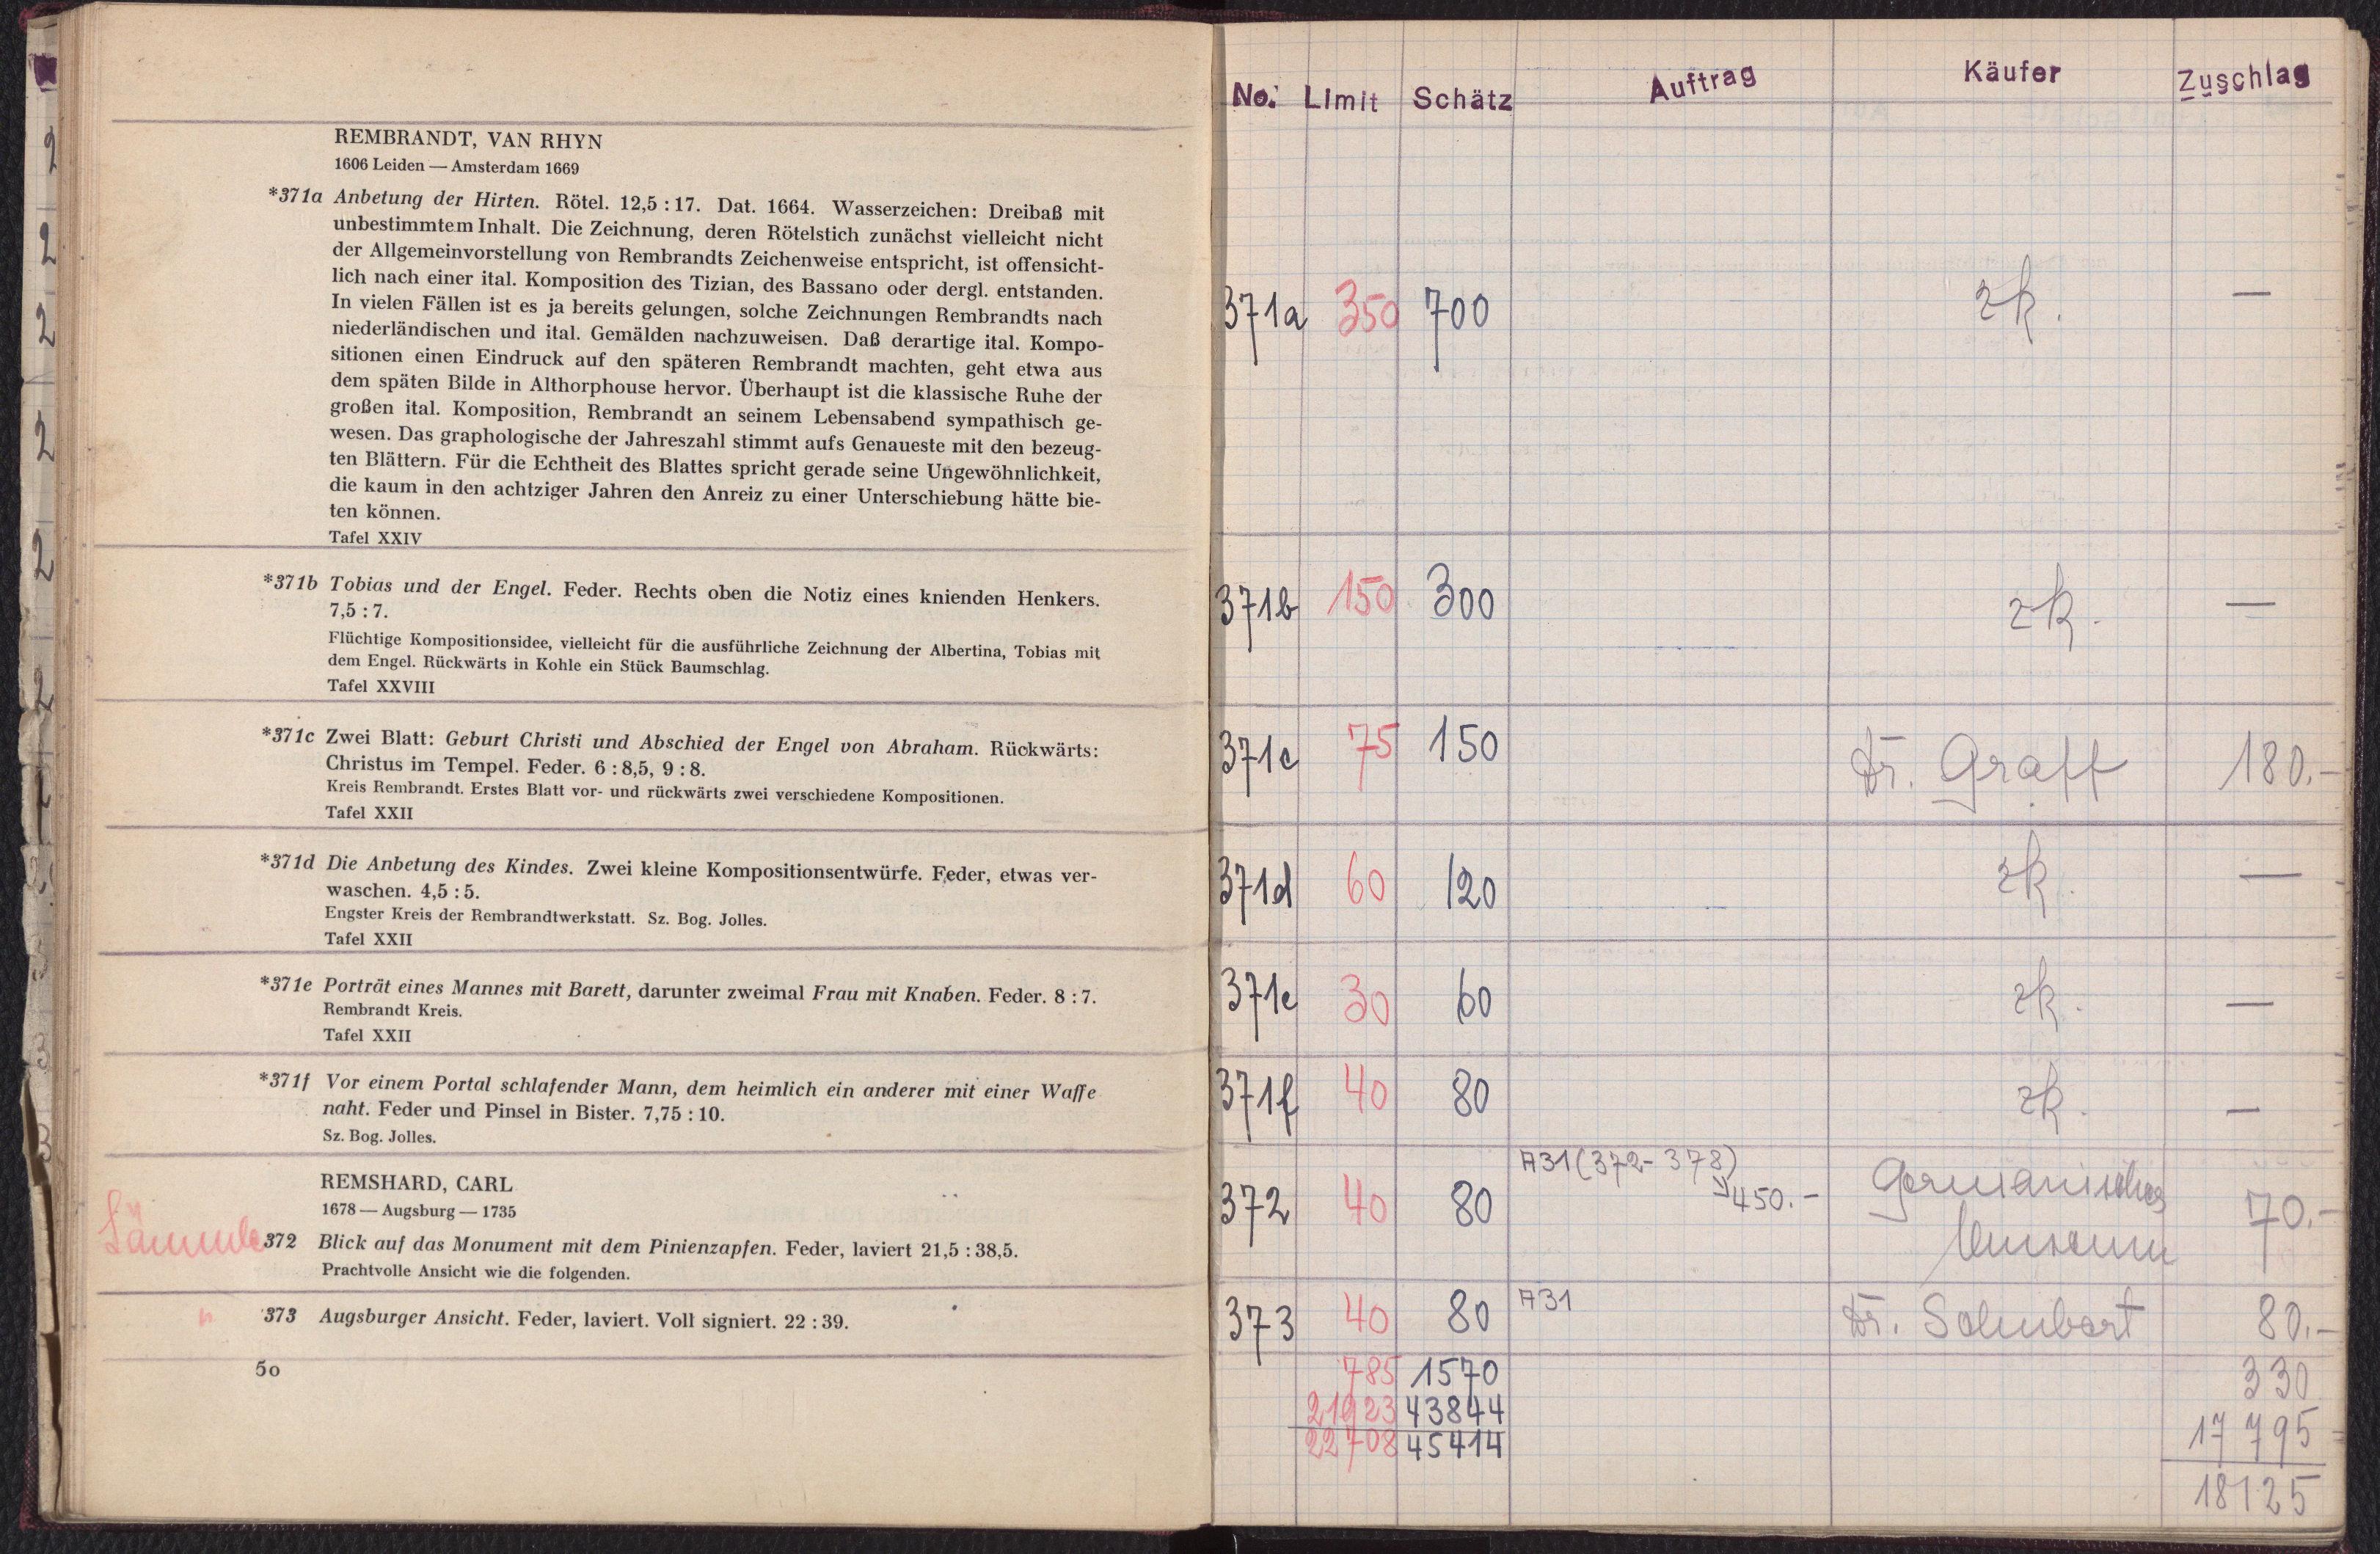 REMBRANDT, VAN RHYN
1606 Leiden — Amsterdam 1669
*371a Anbetung der Hirten. Rötel. 12,5 : 17. Dat. 1664. Wasserzeichen: Dreibaß mit
unbestimmtem Inhalt. Die Zeichnung, deren Rötelstich zunächst vielleicht nicht
der Allgemeinvorstellung von Rembrandts Zeichenweise entspricht, ist offensicht-
lich nach einer ital. Komposition des Tizian, des Bassano oder dergl. entstanden.
In vielen Fällen ist es ja bereits gelungen, solche Zeichnungen Rembrandts nach
niederländischen und ital. Gemälden nachzuweisen. Daß derartige ital. Kompo-
sitionen einen Eindruck auf den späteren Rembrandt machten, geht etwa aus
dem späten Bilde in Althorphouse hervor. Überhaupt ist die klassische Ruhe der
großen ital. Komposition, Rembrandt an seinem Lebensabend sympathisch ge-
wesen. Das graphologische der Jahreszahl stimmt aufs Genaueste mit den bezeug-
ten Blättern. Für die Echtheit des Blattes spricht gerade seine Ungewöhnlichkeit,
die kaum in den achtziger Jahren den Anreiz zu einer Unterschiebung hätte bie-
ten können.
Tafel XXIV
*371b Tobias und der Engel. Feder. Rechts oben die Notiz eines knienden Henkers.
7,5 : 7.
Flüchtige Kompositionsidee, vielleicht für die ausführliche Zeichnung der Albertina, Tobias mit
dem Engel. Rückwärts in Kohle ein Stück Baumschlag.
Tafel XXVIII
*371c Zwei Blatt: Geburt Christi und Abschied der Engel von Abraham. Rückwärts:
Christus im Tempel. Feder. 6 : 8,5, 9 : 8.
Kreis Rembrandt. Erstes Blatt vor- und rückwärts zwei verschiedene Kompositionen.
Tafel XXII
*371d Die Anbetung des Kindes. Zwei kleine Kompositionsentwürfe. Feder, etwas ver-
waschen. 4,5 : 5.
Engster Kreis der Rembrandtwerkstatt. Sz. Bog. Jolles.
Tafel XXII
*371e Porträt eines Mannes mit Barett, darunter zweimal Frau mit Knaben. Feder. 8 : 7.
Rembrandt Kreis.
Tafel XXII
*371f Vor einem Portal schlafender Mann, dem heimlich ein anderer mit einer Waffe
naht. Feder und Pinsel in Bister. 7,75 : 10.
Sz. Bog. Jolles.
REMSHARD, CARL
1678 — Augsburg — 1735
372 Blick auf das Monument mit dem Pinienzapfen. Feder, laviert 21,5 : 38,5.
Prachtvolle Ansicht wie die folgenden.
373 Augsburger Ansicht. Feder, laviert. Voll signiert. 22 : 39.
50
No. Limit Schätz Auftrag Käufer Zuschlag
371a 350 700 zk. —
371b 150 300 zk. —
371c 75 150 Dr. Graff 180.-
371d 60 120 zk. —
371e 30 60 zk. —
371f 40 80 zk. —
A31 (372-378)
450.-
372 40 80 Germanisches 70.-
Museum
373 40 80 A31 Dr. Schubert 80.-
785 1570 330
21923 43844 17795
22708 45414 18125